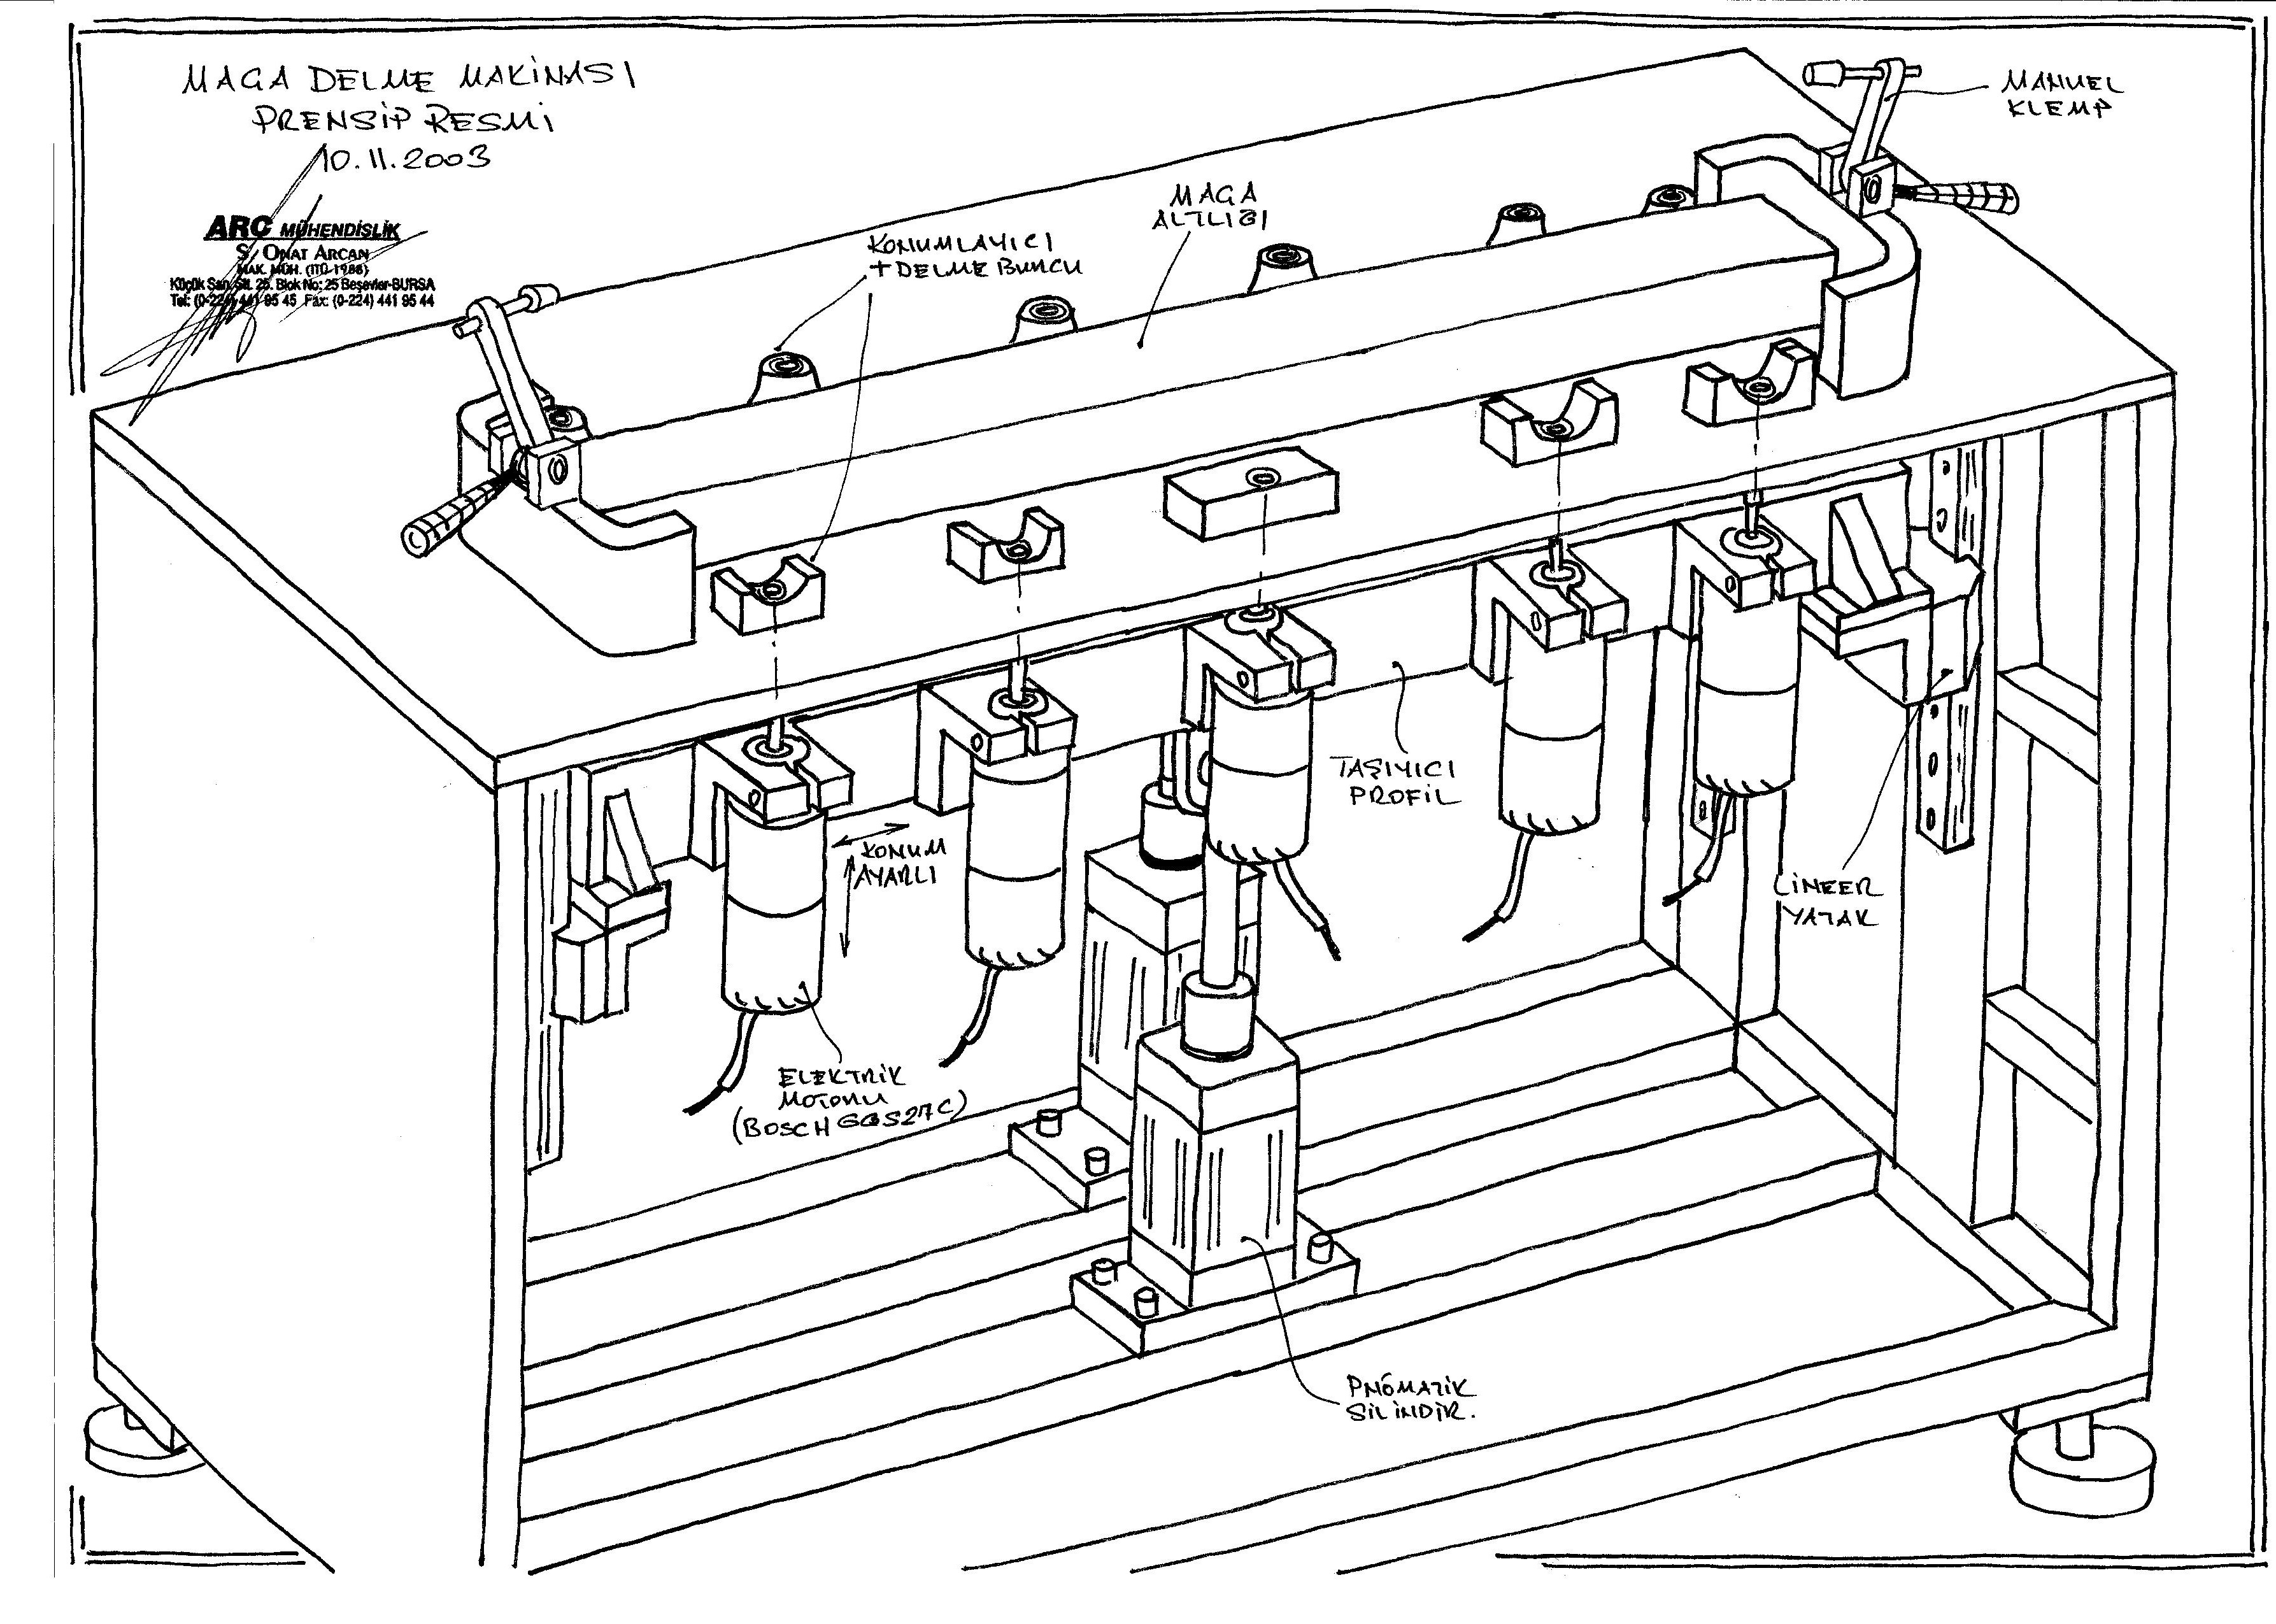 MAGA DELME MAKİNASI
PRENSİP RESMİ
10.11.2003
ARC MÜHENDİSLİK
S. ONAT ARCAN
MAK. MÜH. (İTÜ-1986)
Küçük San. Sit. 25. Blok No: 25 Beşevler-BURSA
Tel: (0-224) 441 95 45 Fax: (0-224) 441 95 44
MANUEL
KLEMP
MAGA
ALTLIĞI
KONUMLAYICI
+ DELME BURCU
TAŞIYICI
PROFİL
KONUM
AYARLI
LİNEER
YATAK
ELEKTRİK
MOTORU
(BOSCH GGS27C)
PNÖMATİK
SİLİNDİR.